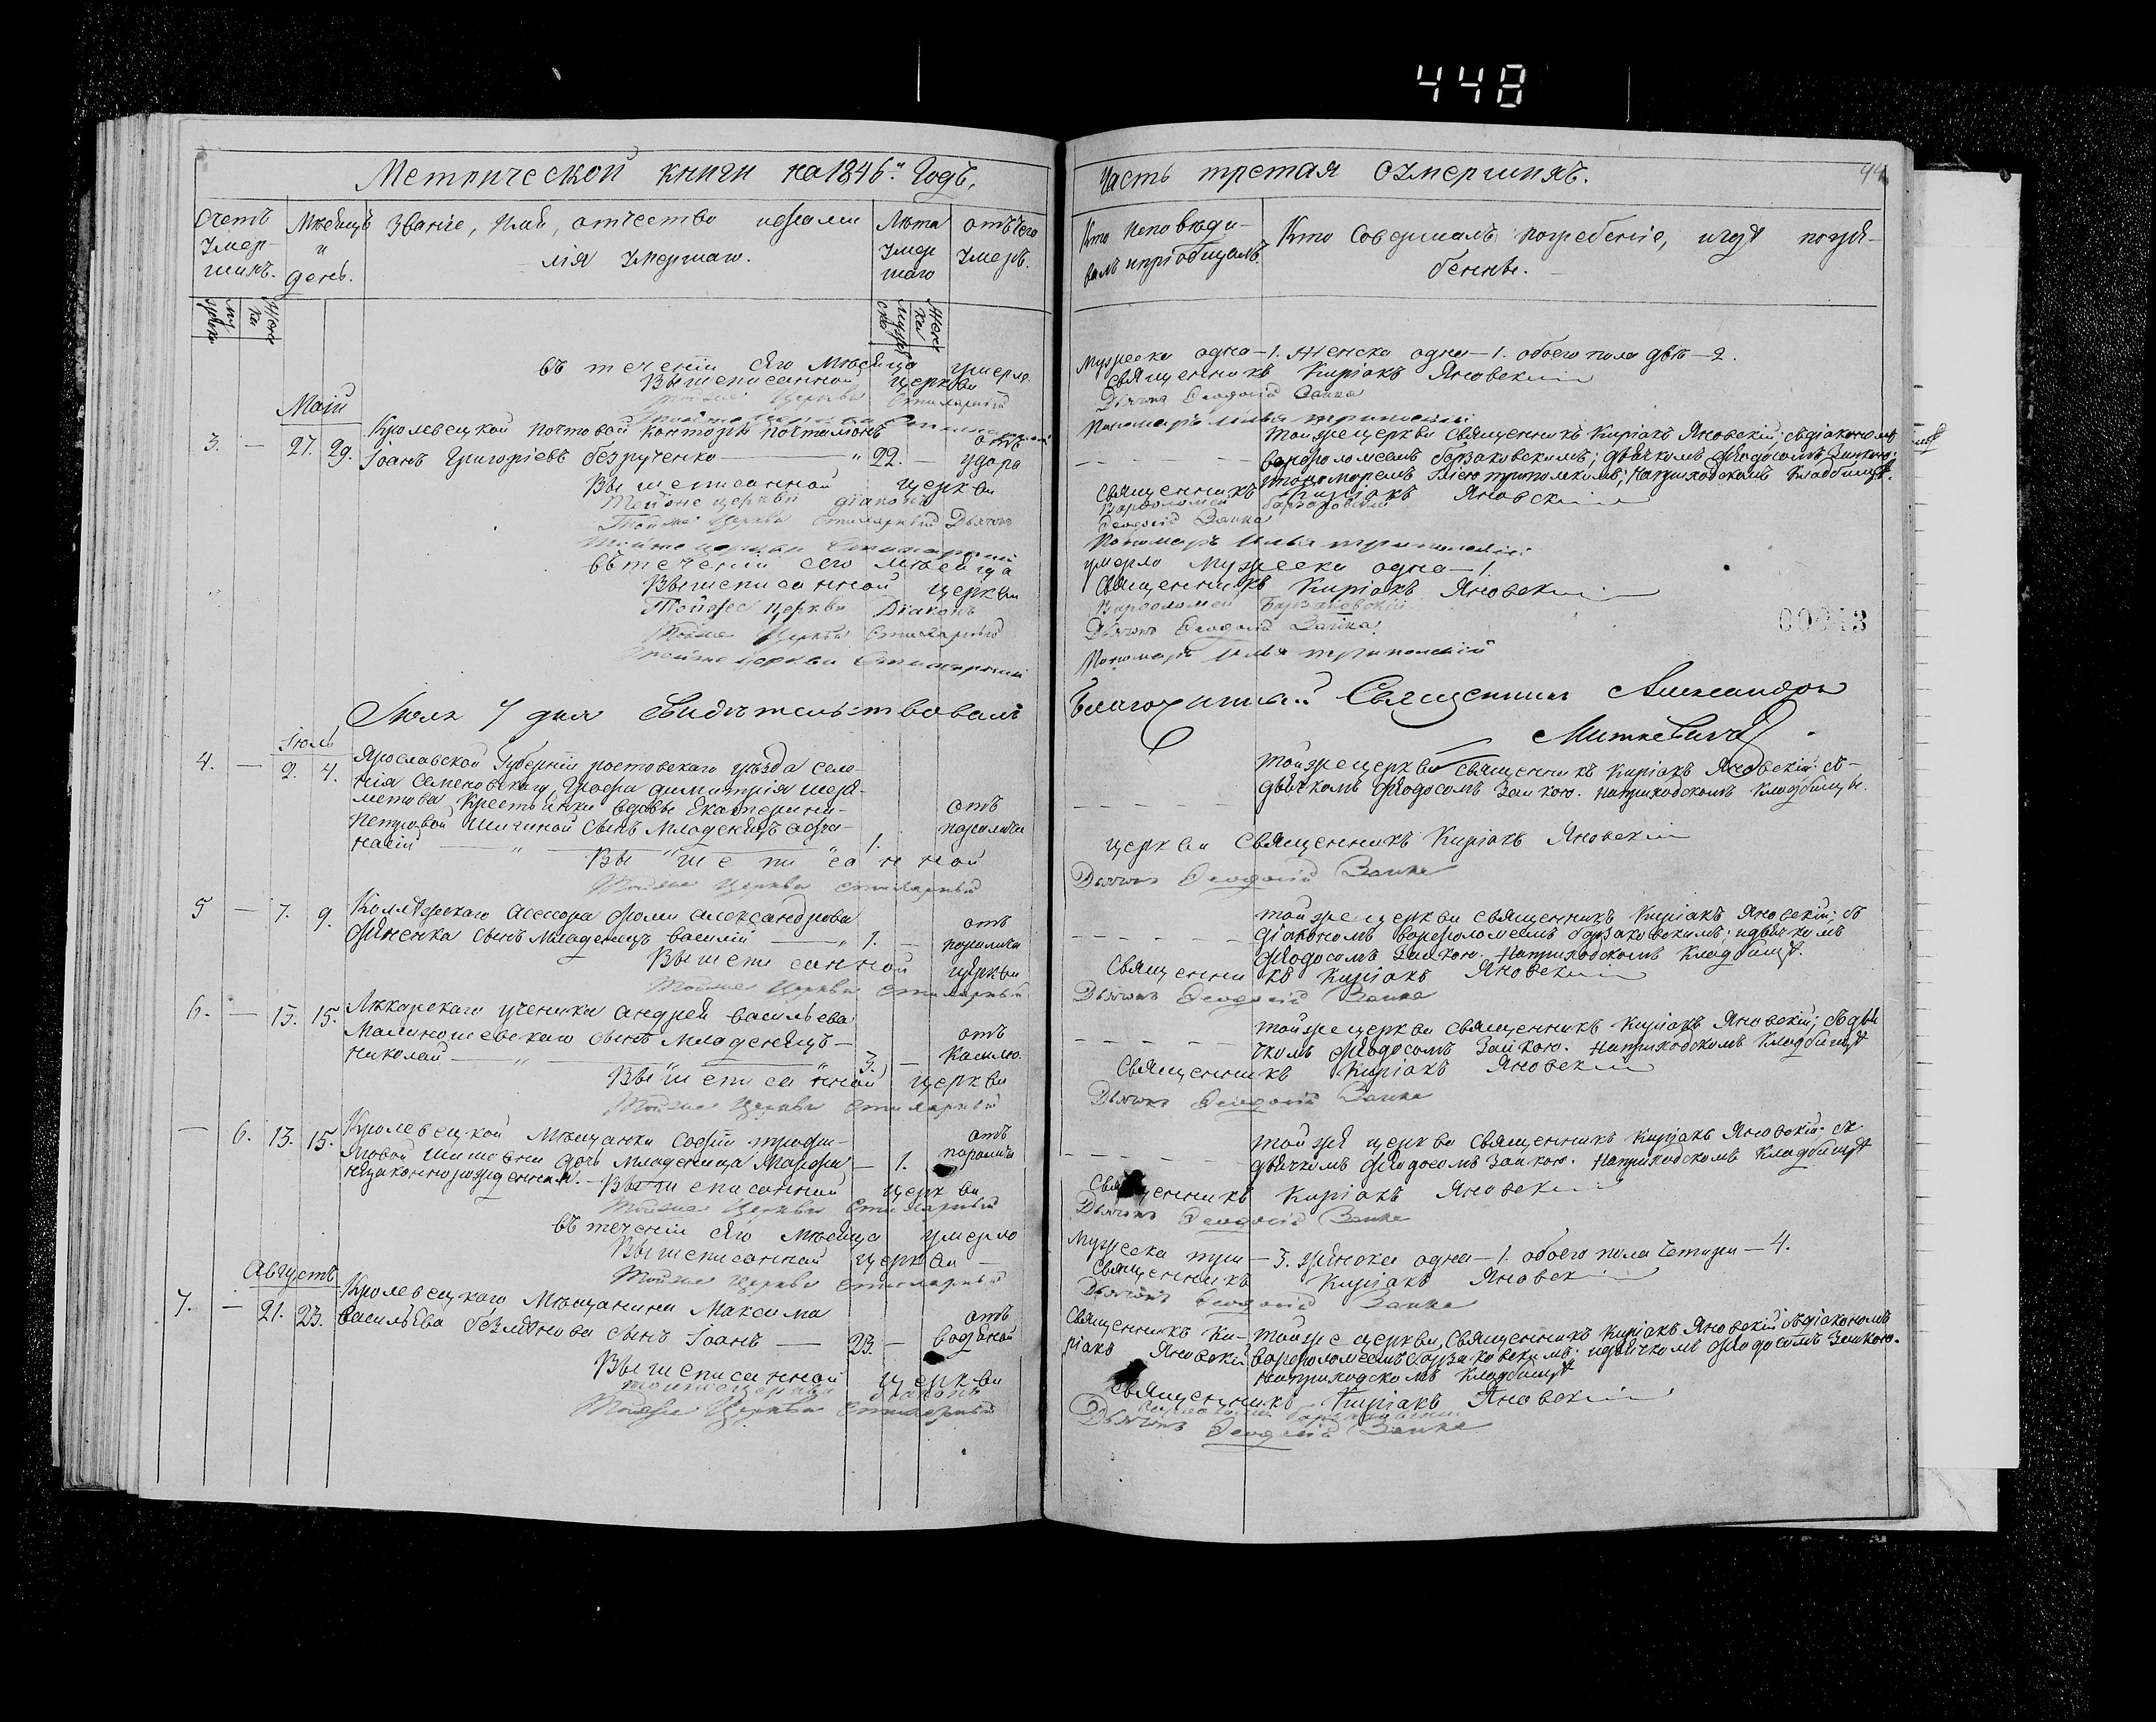 448
Метрической книги на 1846й Годъ,
Счетъ Умершихъ.
Мѣсяцъ и день.
Званіе, Имя, отчество ифамилія Умершаго.
Лѣта Умершаго
отъ Чего Умеръ.
въ теченіи сего Мѣсяца умерло
Вышеписанной церкви
Тойже Церкви Стихарный
Маій
3. — 27. 29. Кролевецкой Почтовой Конторы почталіонъ
Іоанъ Григоріевъ безрученко — 22. — отъ удара
Вышеписанной церкви
Тойже церкви діаконъ
Тойже Церкви Стихарный Дьячокъ
Тойже церкви Стихарный
въ теченіи сего мѣсяца
Вышеписанной церкви
Тойже Церкви Діаконъ
Тойже Церкви Стихарный
Тойже церкви Стихарный
Іюля 7 дня Свидѣтельствовалъ
Іюль
4. — 2. 4. Ярославской Губерніи ростовскаго уѣзда селе-
нія Семеновскаго, Графа димитрія шере-
метова Крестьянки вдовы Екатерины
Петровой Шигиной сынъ Младенецъ афа-
насій — 1. отъ
Вышеписанной
Тойже Церкви Стихарный
5 — 7. 9. Коллежскаго Асессора Фомы Александрова
Финенка сынъ Младенецъ василій — 1. — отъ
Вышеписанной церкви
Тойже Церкви Стихарный
6. — 15. 15. Лѣкарскаго ученика Андрея васильева
Малиношевскаго сынъ Младенецъ —
николай — 3. — отъ Кашлю.
Вышеписанной церкви
Тойже Церкви Стихарный
— 6. 13. 15. Кролевецкой Мѣщанки Софіи трофи-
мовой дочь Младеница Марфа — 1. отъ
незаконнорожденная. — Вышеписанной церкви
Тойже Церкви Стихарный
въ теченіи сего Мѣсяца умерло
Вышеписанной церкви —
Тойже Церкви Стихарный
Августъ
7. — 21. 23. Кролевецкаго Мѣщанина Максима
васильева сынъ Іоанъ — 23. — отъ водяной
Вышеписанной церкви
Тойже церкви діаконъ
Тойже Церкви Стихарный
Часть третая Оумершихъ.
44
Кто исповѣды-
валъ ипріобщалъ.
Кто Совершалъ погребеніе, игдѣ погре-
бены.
Мужеска одна — 1. Женска одна — 1. обоего пола двѣ — 2.
Священникъ Киріакъ Яновскій
Дьячокъ Феодосій Заика
Пономарь Илья трипольскій
Тойжецеркви Священникъ Киріакъ Яновскій; съдіакономъ
варфоломеемъ барзаковскимъ; дьячкомъ Феодосомъ Заикою;
пономоремъ Иліею трипольскимъ; наприходскомъ Кладбищѣ.
Священникъ Киріакъ Яновскій
Варфоломей барзаковскій
Феодосій Заика
Пономарь Илья трипольскій
умерло Мужеска одна — 1.
Священникъ Киріакъ Яновскій
Варфоломей Барзаковскій
Дьячокъ Феодосій Заика
Пономарь Илья трипольскій
Благочинный Священникъ Александръ
Миткевичъ
Тойжецеркви Священникъ Киріакъ Яновскій; съ-
дьячкомъ Феодосомъ Заикою. наприходскомъ Кладбищѣ.
церкви Священникъ Киріакъ Яновскій
Дьячокъ Феодосій Заика
тойжецеркви священникъ Киріакъ Яновскій; съ
діакономъ варфоломеемъ барзаковскимъ; идьячкомъ
Феодосомъ Заикою. Наприходскомъ Кладбищѣ.
Священникъ Киріакъ Яновскій
Дьячокъ Феодосій Заика
тойжецеркви священникъ Киріакъ Яновскій; съдья
чкомъ Феодосомъ Заикою. Наприходскомъ Кладбищѣ
Священникъ Киріакъ Яновскій
Дьячокъ Феодосій Заика
той же церкви Священникъ Киріакъ Яновскій; съ
дьячкомъ Феодосомъ Заикою. Наприходскомъ Кладбищѣ
Священникъ Киріакъ Яновскій
Дьячокъ Феодосій Заика
Мужеска три — 3. женска одна — 1. обоего пола четыри — 4.
Священникъ Киріакъ Яновскій
Дьячокъ Феодосій Заика
Священникъ Ки-
ріакъ Яновскій
тойже церкви, Священникъ Киріакъ Яновскій съдіакономъ
варфоломеемъ барзаковскимъ; идьячкомъ Феодосомъ Заикою.
наприходскомъ Кладбищѣ
Священникъ Киріакъ Яновскій
Дьячокъ Феодосій Заика